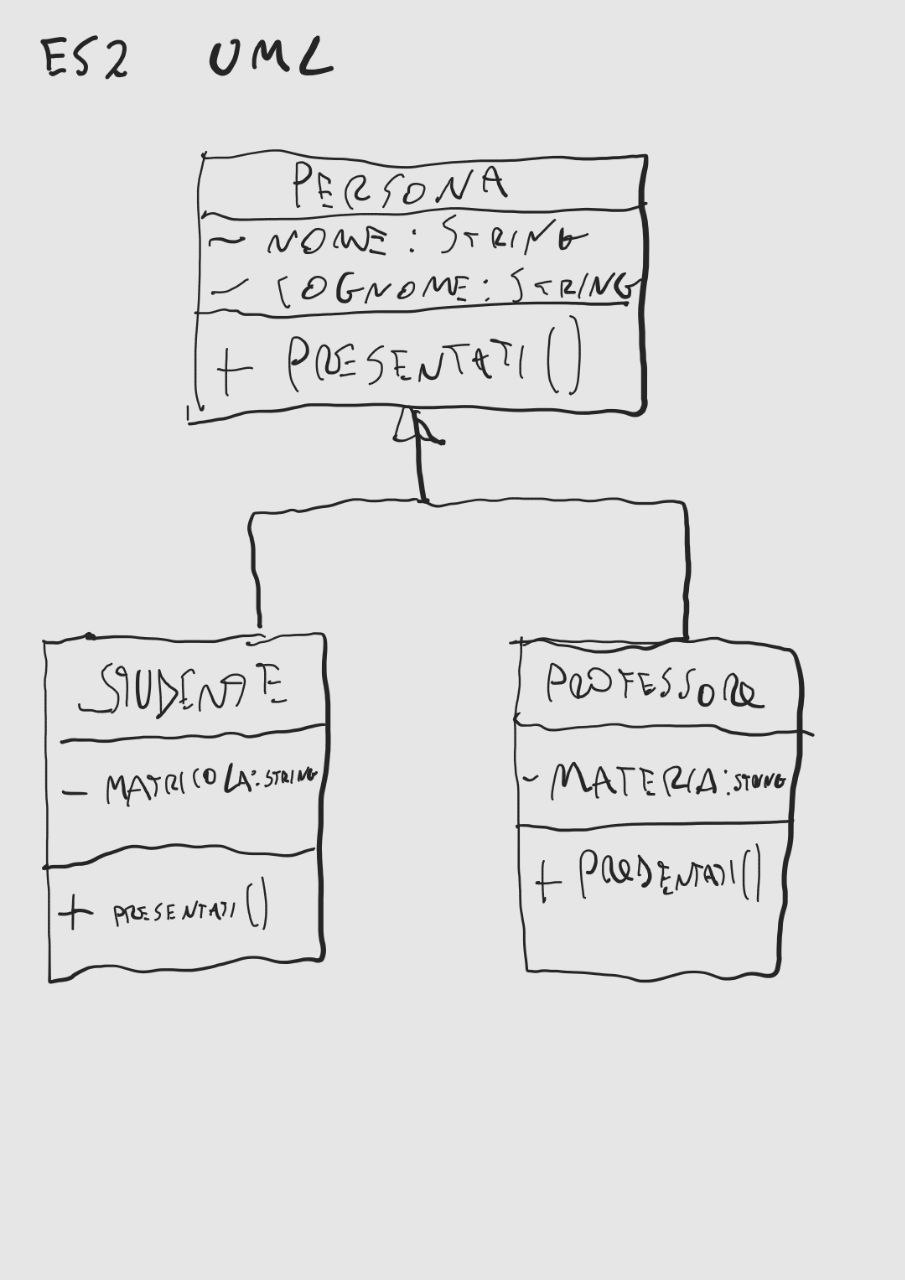 ES2 UML
PERSONA
- NOME: STRING
- COGNOME: STRING
+ PRESENTATI()
STUDENTE
- MATRICOLA: STRING
+ PRESENTATI()
PROFESSORE
- MATERIA: STRING
+ PRESENTATI()